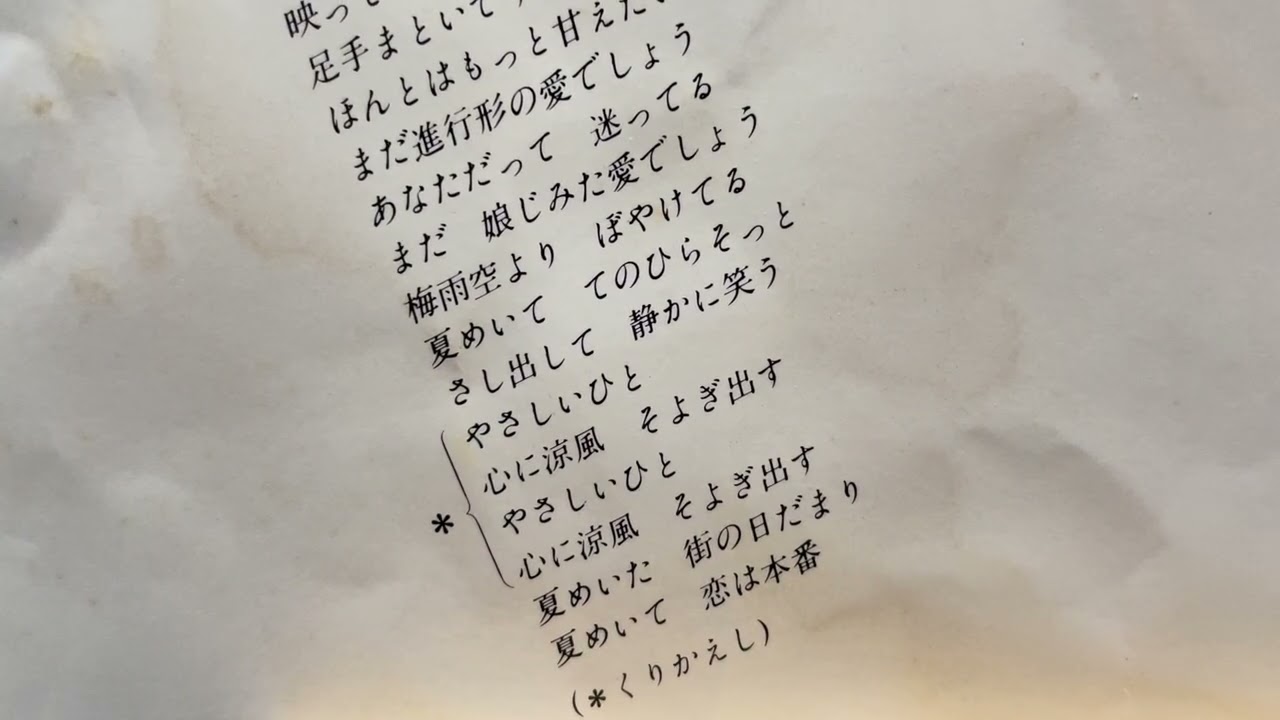 映って
足手まといで
ほんとはもっと甘えたい
まだ進行形の愛でしょう
あなただって　迷ってる
まだ　娘じみた愛でしょう
梅雨空より　ぼやけてる
夏めいて　てのひらそっと
さし出して　静かに笑う
やさしいひと
心に涼風　そよぎ出す
やさしいひと
心に涼風　そよぎ出す
＊
夏めいた　街の日だまり
夏めいて　恋は本番
(＊くりかえし)